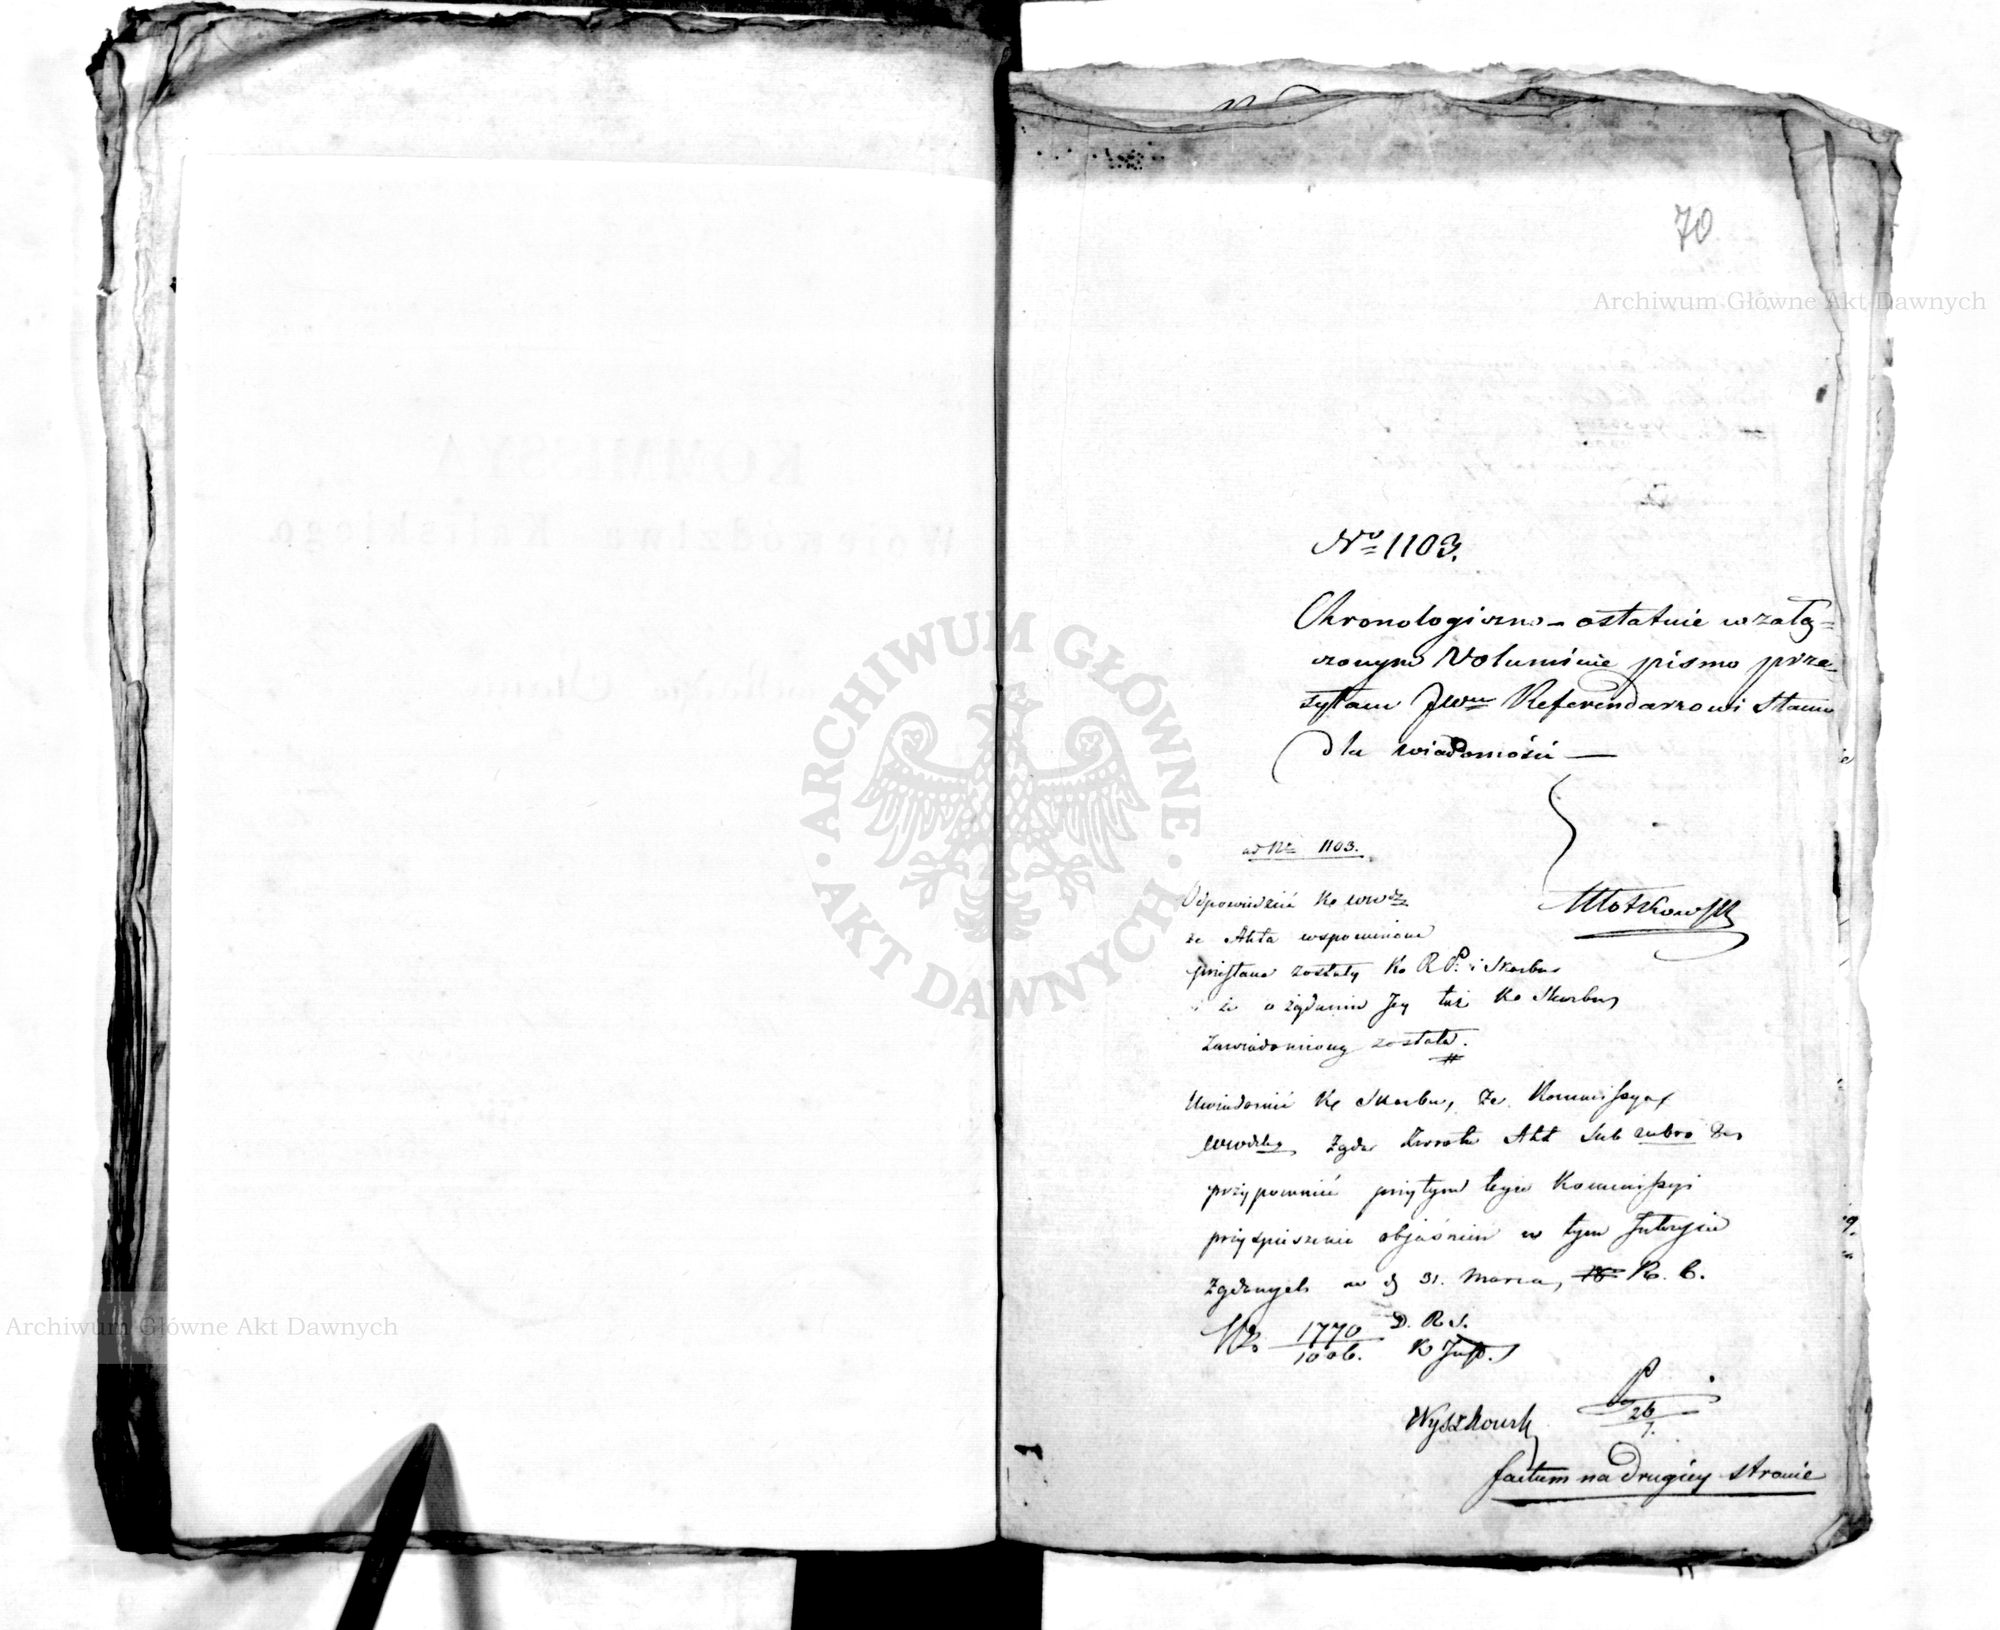 70
Archiwum Główne Akt Dawnych
No 1103.
Chronologiczno – ostatnie w załą=
czonym Voluminie pismo prze=
syłam JWmu Referendarzowi Stanu
dla wiadomości —
ad No 1103.
Odpowiedzieć Ko
że Akta wspomnione
przesłane zostały Ko R P. i Skarbu
i że o żądaniu Jey też Ko Skarbu
zawiadomioną została.
Uwiadomić Kę Skarbu, że Kommissya
żąda zwrotu Akt sub rubro
przypomnieć przytym teyże Kommissyi
przyspieszenie objaśnień w tym Interessie
żądanych w d 31. Marca, R. b.
No 1770/1006.
D. R. S.
Wyszkowsk
26/7.
factum na drugiey stronie
ARCHIWUM GŁÓWNE AKT DAWNYCH
KOMMISSYA
Województwa Kaliskiego.
Archiwum Główne Akt Dawnych